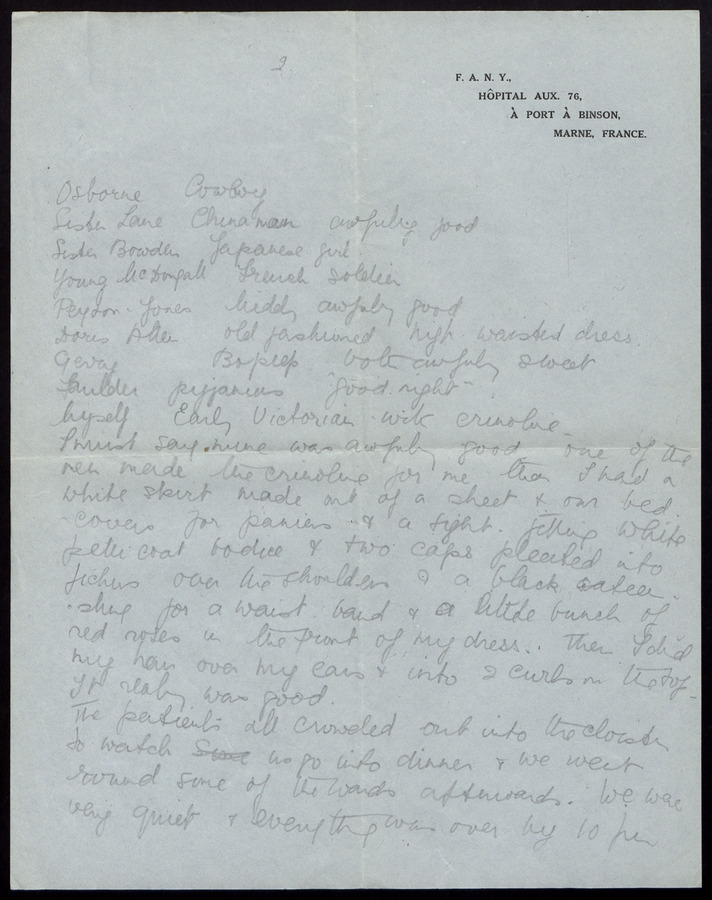 2
F. A. N. Y.,
HÔPITAL AUX. 76,
À PORT À BINSON,
MARNE, FRANCE.
Osborne Cowboy
Sister Lane Chinaman awfully good
Sister Bowden Japanese girl
Young McDougall French Soldier
Peyton-Jones awfully good
Doris Allen old fashioned high-waisted dress.
Bo peep both awfully sweet
pyjamas "good night"
Myself Early Victorian with crinoline
I must say mine was awfully good one of the
men made the crinoline for me then I had a
white skirt made out of a sheet & our bed
covers for paniers & a tight-fitting white
petticoat bodice & two caps pleated into
fichus over the shoulders & a black sateen
sling for a waist band & a little bunch of
red roses in the front of my dress.. Then I did
my hair over my ears & into 2 curls on the top
It really was good.
The patients all crowded out into the cloister
to watch us go into dinner & we went
round some of the wards afterwards. We were
very quiet & everything was over by 10 pm